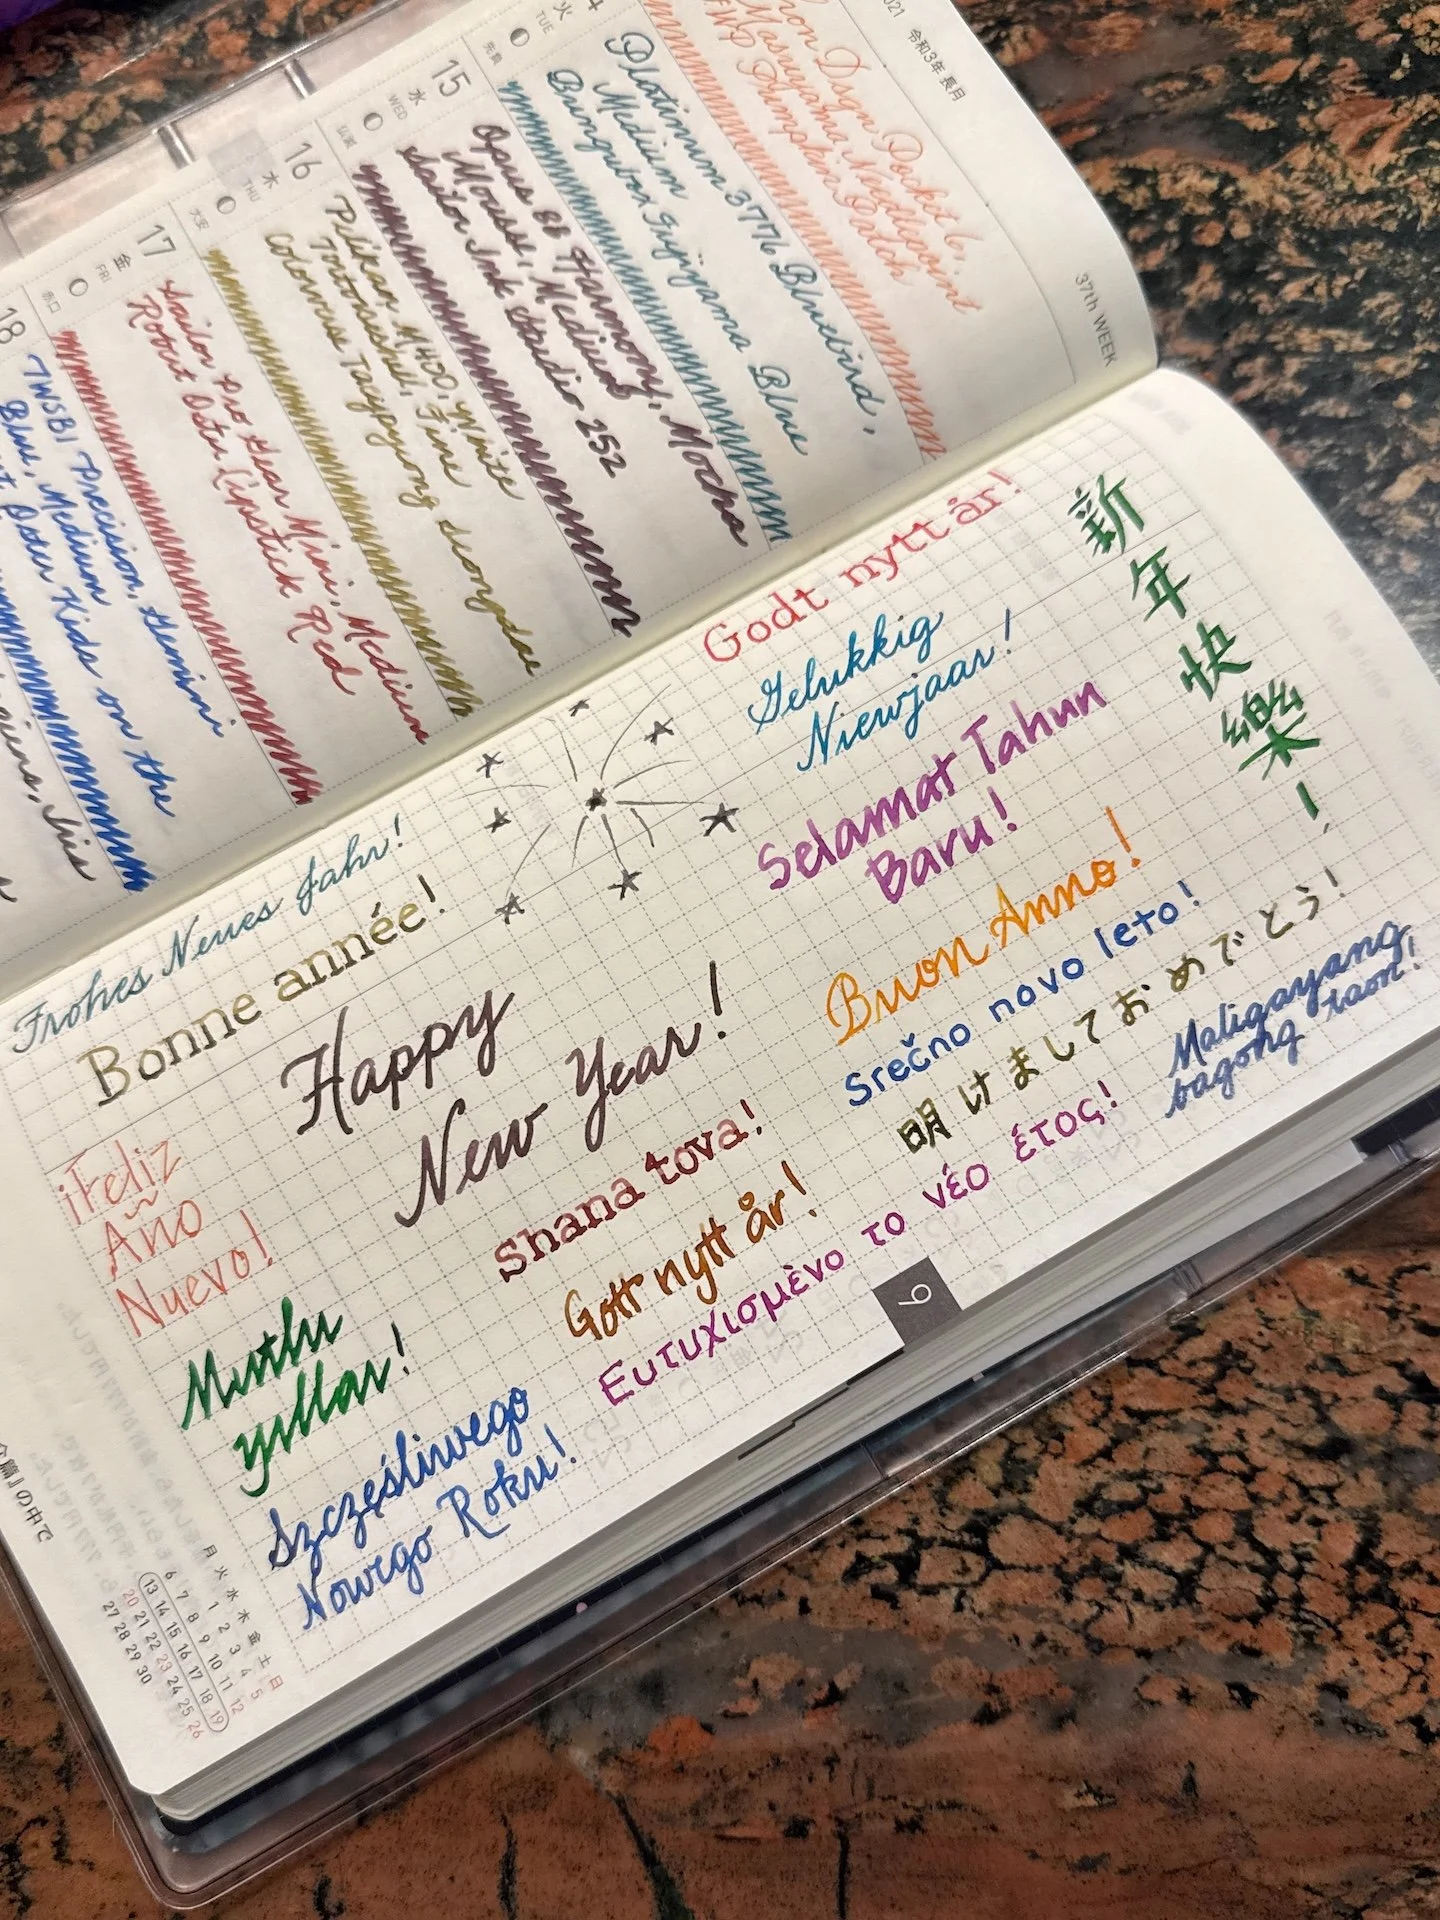 2021 令和3年 長月
37th WEEK
Dsgn Pocket 6,
Masuyama Needlepoint
FWP Pumpkin Patch
火
TUE
先負
Platinum 3776 Bluebird,
Medium
Bungubox Fujiyama Blue
15
水
WED
仏滅
Opus 88 Harmony, Mocha
Mousse, Medium
Sailor Ink Studio 252
16
木
THU
大安
Pelikan M400, White
Tortoiseshell, Fine
Colorverse Taepyeong
17
金
FRI
赤口
Sailor Pro Gear Mini, Medium
Robert Oster Lipstick Red
18
TWSBI Precision, Gemini
Blue, Medium
Oster Kids on the
Godt nytt år!
Gelukkig
Niewjaar!
新年快樂!
Selamat Tahun
Baru!
Frohes Neues Jahr!
Bonne année!
Happy
New Year!
Buon Anno!
Srečno novo leto!
明けましておめでとう!
Maligayang
bagong taon!
¡Feliz
Año
Nuevo!
Shana tova!
Gott nytt år!
Ευτυχισμὲνο το νέο έτος!
Mutlu
yıllar!
Szczęśliwego
Nowego Roku!
9
の中で
月 火 水 木 金 土 日
1 2 3 4 5
6 7 8 9 10 11 12
13 14 15 16 17 18 19
20 21 22 23 24 25 26
27 28 29 30